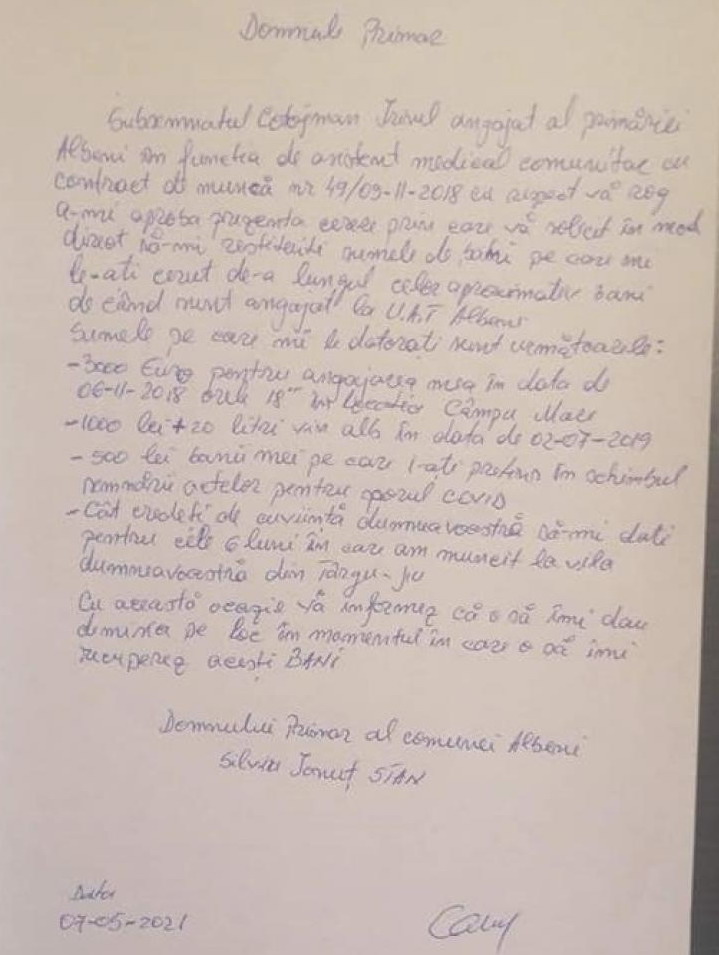 Domnule Primar
Subsemnatul Cotojman Irinel angajat al primăriei
Albeni în funcția de asistent medical comunitar cu
contract de muncă nr 49/09-11-2018 cu respect vă rog
a-mi aproba prezenta cerere prin care vă solicit în mod
direct să-mi restituiți sumele de bani pe care mi
le-ati cerut de-a lungul celor aproximativ 3ani
de când sunt angajat la U.A.T Albeni
Sumele pe care mi le datorați sunt următoarele:
-3000 Euro pentru angajarea mea în data de
06-11-2018 orele 18⁰⁰ în locatia Câmpu Mare
-1000 lei + 20 litri vin alb în data de 02-07-2019
- 500 lei banii mei pe care i-ați pretins în schimbul
semnării actelor pentru sporul COVID
- Cât credeti de cuviință dumneavoastră să-mi dati
pentru cele 6 luni în care am muncit la vila
dumneavoastră din Târgu-Jiu
Cu această ocazie vă informez că o să îmi dau
demisia pe loc în momentul în care o să îmi
recuperez acești BANi
Domnului Primar al comunei Albeni
Silviu Ionuț STAN
Data
07-05-2021